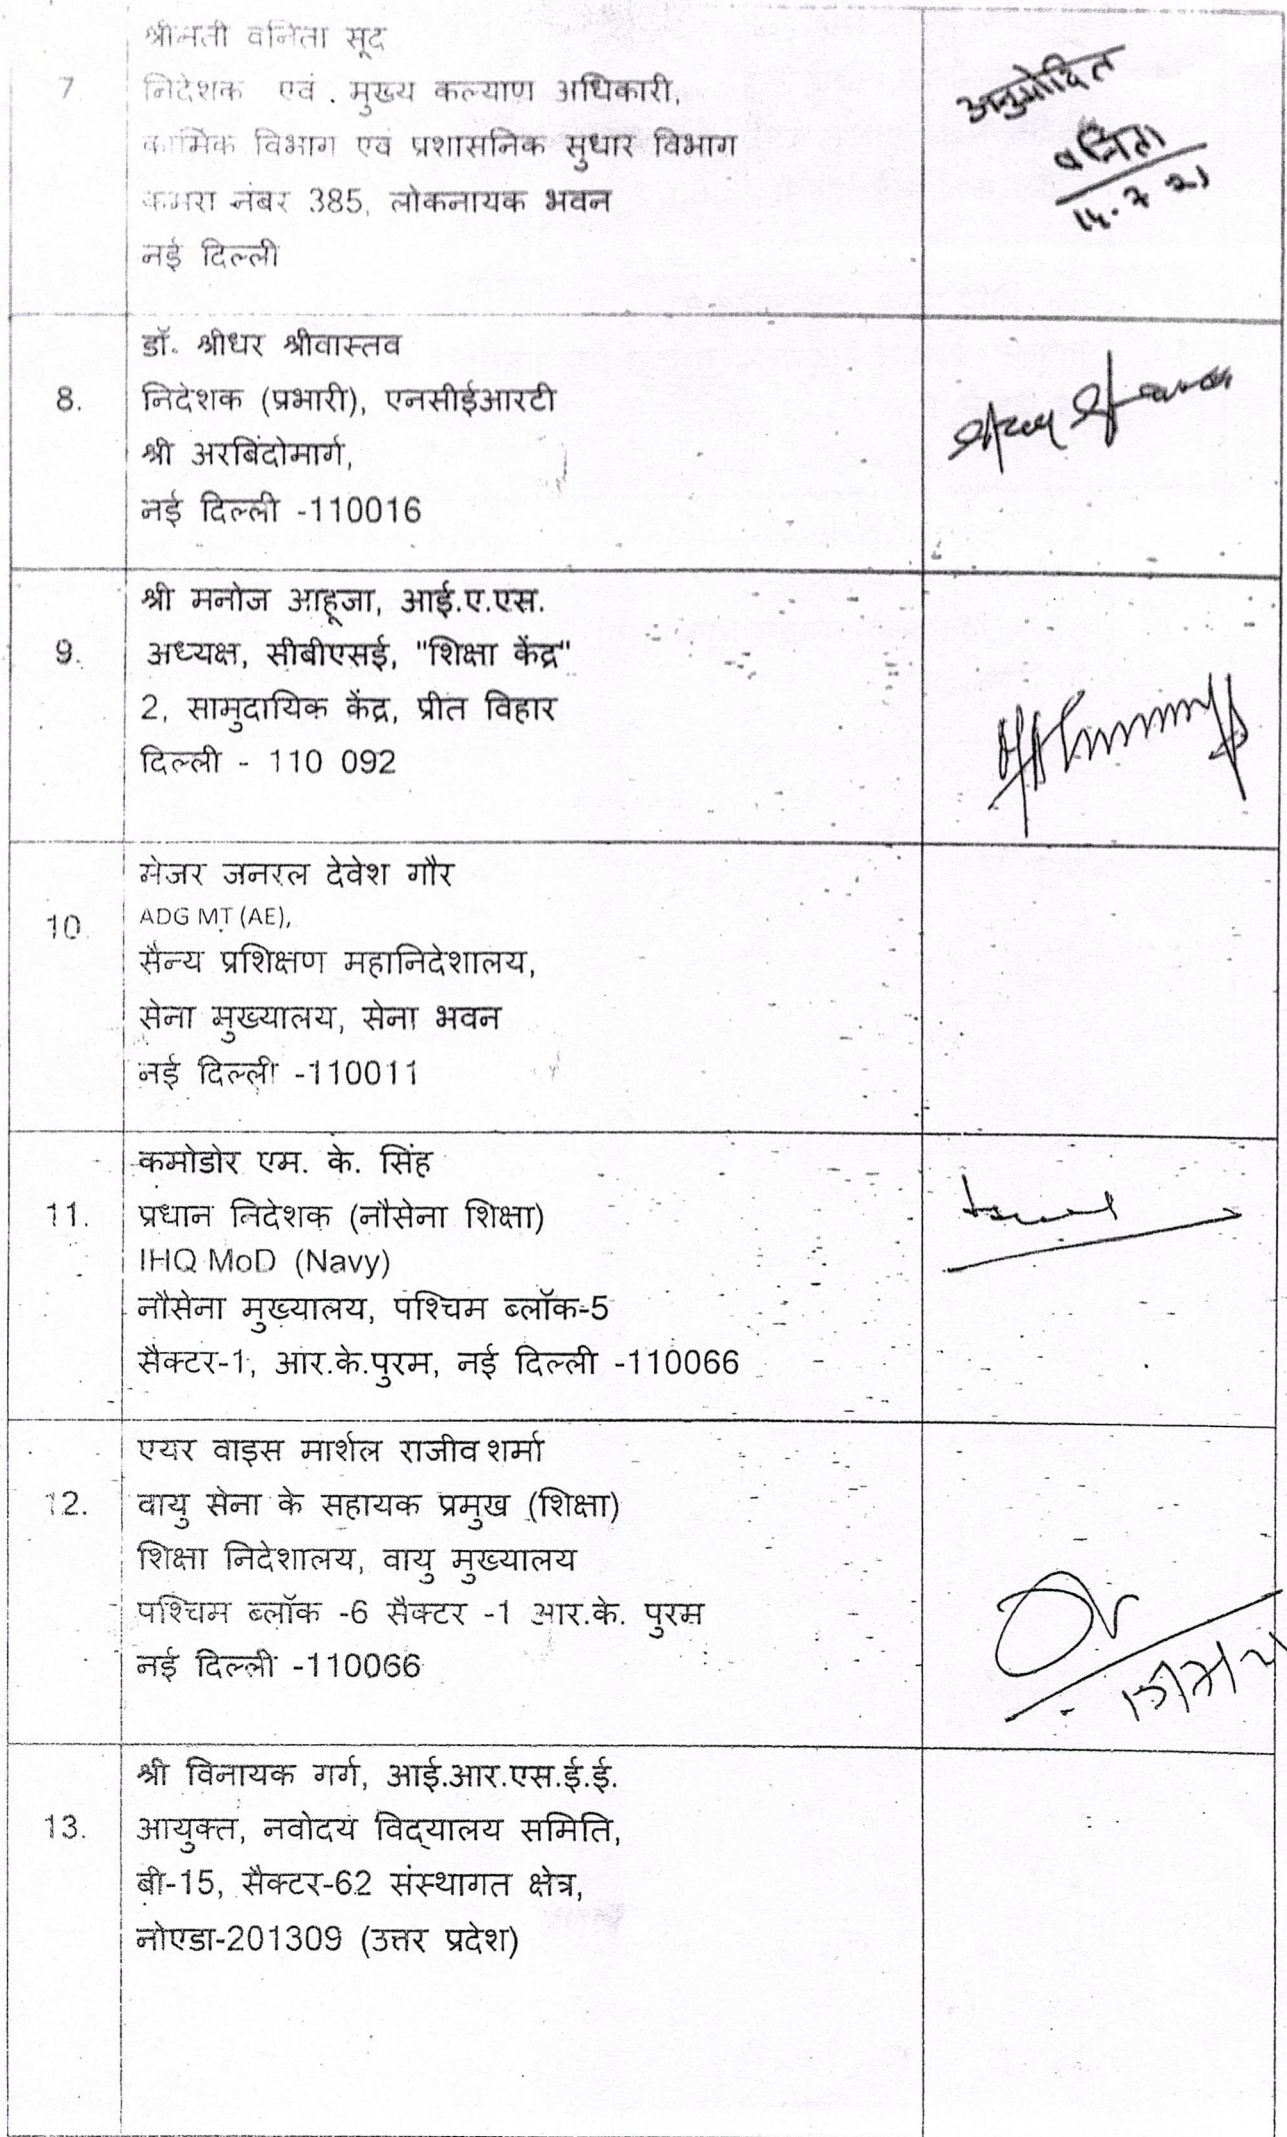 श्रीमती वनिता सूद
7. निदेशक एवं . मुख्य कल्याण अधिकारी,
कार्मिक विभाग एवं प्रशासनिक सुधार विभाग
कमरा नंबर 385, लोकनायक भवन
नई दिल्ली
अनुमोदित
वनिता
14.7.21
डॉ. श्रीधर श्रीवास्तव
8. निदेशक (प्रभारी), एनसीईआरटी
श्री अरबिंदोमार्ग,
नई दिल्ली -110016
श्री मनोज आहूजा, आई.ए.एस.
9. अध्यक्ष, सीबीएसई, "शिक्षा केंद्र"
2, सामुदायिक केंद्र, प्रीत विहार
दिल्ली - 110 092
मेजर जनरल देवेश गौर
10. ADG MT (AE),
सैन्य प्रशिक्षण महानिदेशालय,
सेना मुख्यालय, सेना भवन
नई दिल्ली -110011
कमोडोर एम. के. सिंह
11. प्रधान निदेशक (नौसेना शिक्षा)
IHQ MoD (Navy)
नौसेना मुख्यालय, पश्चिम ब्लॉक-5
सैक्टर-1, आर.के.पुरम, नई दिल्ली -110066
एयर वाइस मार्शल राजीव शर्मा
12. वायु सेना के सहायक प्रमुख (शिक्षा)
शिक्षा निदेशालय, वायु मुख्यालय
पश्चिम ब्लॉक -6 सैक्टर -1 आर.के. पुरम
नई दिल्ली -110066
श्री विनायक गर्ग, आई.आर.एस.ई.ई.
13. आयुक्त, नवोदय विद्यालय समिति,
बी-15, सैक्टर-62 संस्थागत क्षेत्र,
नोएडा-201309 (उत्तर प्रदेश)